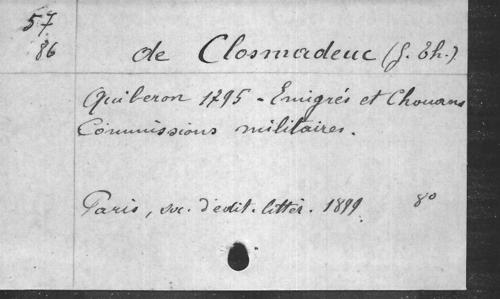 57
86
de Closmadeuc (G. Th.)
Quiberon 1795 - Emigrés et Chouans
Commissions militaires.
Paris, soc. d'édit. littér. 1899. 8°